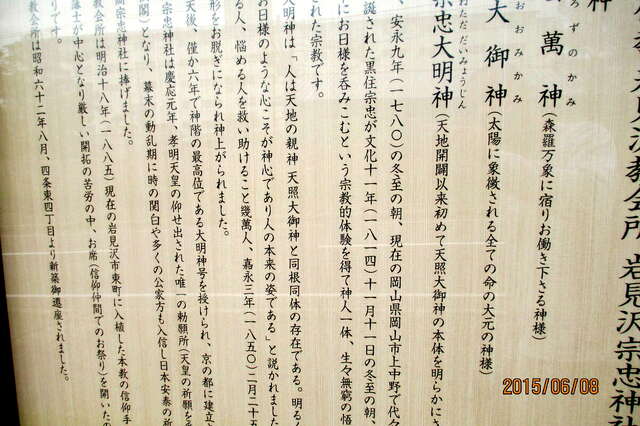 見沢教会所 岩見沢宗忠神社
神
ろずのかみ
萬神(森羅万象に宿りお働き下さる神様)
おおみかみ
大御神(太陽に象徴される全ての命の大元の神様)
ただだいみょうじん
宗忠大明神(天地開闢以来初めて天照大御神の本体を明らかにさ
、安永九年(一七八〇)の冬至の朝、現在の岡山県岡山市上中野で代々
誕された黒住宗忠が文化十一年(一八一四)十一月十一日の冬至の朝、
にお日様を呑みこむという宗教的体験を得て神人一体、生々無窮の悟
れた宗教です。
大明神は「人は天地の親神 天照大御神と同根同体の存在である。明る
お日様のような心こそが神心であり人の本来の姿である」と説かれまし
る人、悩める人を救い助けること幾萬人、嘉永三年(一八五〇)二月二十五
形をお脱ぎになられ神上がられました。
天後、僅か六年で神階の最高位である大明神号を授けられ、京の都に建立
宗忠神社は慶応元年、孝明天皇の仰せ出された唯一の勅願所(天皇の祈願を
閣)となり、幕末の動乱期に時の関白や多くの公家方も入信し日本安泰の祈
宗忠神社に捧げました。
教会所は明治十八年(一八八五)現在の岩見沢市東町に入植した本教の信仰手
藩士が中心となり厳しい開拓の苦労の中、お席(信仰仲間でのお祭り)を開いたの
りです。
教会所は昭和六十二年八月、四条東四丁目より新築御遷座されました。
2015/06/08